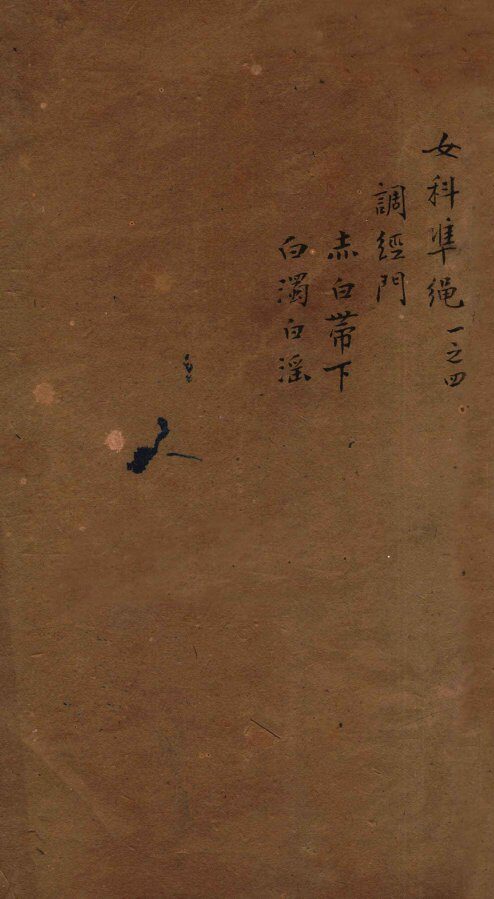 女科準绳 一之四
調經門
赤白帶下
白濁白滛